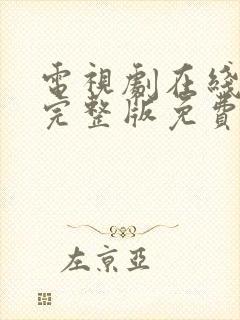 電視劇在綫
完整版免費
左京亞